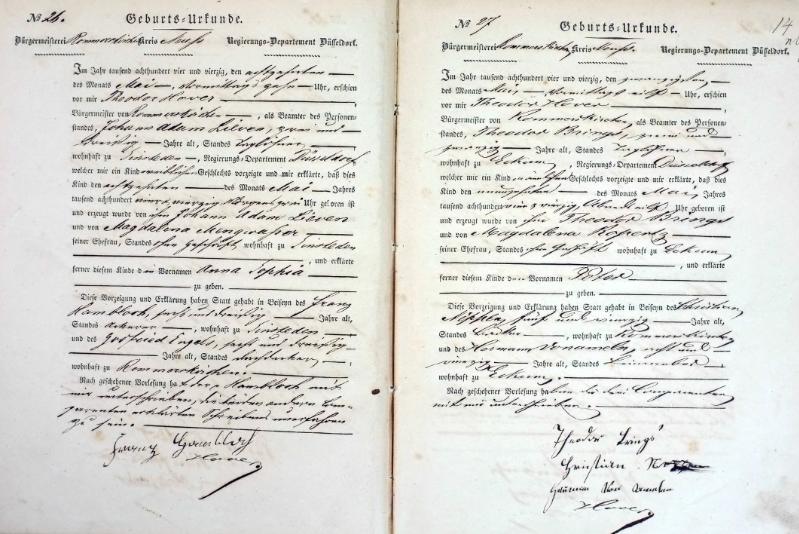 No 26.
Geburts-Urkunde.
Bürgermeisterei Rommerskirchen Kreis Neuss Regierungs-Departement Düsseldorf.
Im Jahr tausend achthundert vier und vierzig, den achtzehnten
des Monats Mai, Vormittags zehn Uhr, erschien
vor mir Theodor Hover
Bürgermeister von Rommerskirchen, als Beamter des Personen-
standes, Johann Adam Lieven, zwei und
dreißig Jahre alt, Standes Taglöhner
wohnhaft zu Sinsteden, Regierungs-Departement Düsseldorf,
welcher mir ein Kind weiblichen Geschlechts vorzeigte und mir erklärte, daß dies
Kind den achtzehnten des Monats Mai Jahres
tausend achthundert vier u vierzig Uhr geboren ist
und erzeugt wurde von ihm Johann Adam Lieven
und von Magdalena
seiner Ehefrau, Standes ohne Geschäft, wohnhaft zu Sinsteden
, und erklärte
ferner diesem Kinde den Vornamen Anna Sophia
zu geben.
Diese Vorzeigung und Erklärung haben Statt gehabt in Beiseyn des Franz
Hambloch, sechs und dreißig Jahre alt,
Standes Ackerer, wohnhaft zu Sinsteden
und des Gottfried Engels, sechs und dreißig
Jahre alt, Standes
wohnhaft zu Rommerskirchen.
Nach geschehener Vorlesung hat der Hambloch mit
mir unterschrieben, die beiden andern Com-
parenten erklärten Schreibens unerfahren
zu sein.
Franz Hambloch
Hover
No 27.
Geburts-Urkunde.
14
Bürgermeisterei Rommerskirchen Kreis Neuss. Regierungs-Departement Düsseldorf.
Im Jahr tausend achthundert vier und vierzig, den zwanzigsten
des Monats Mai, Vormittags eilf Uhr, erschien
vor mir Theodor Hover
Bürgermeister von Rommerskirchen, als Beamter des Personen-
standes, Theodor Brings, zwei und
Jahre alt, Standes Taglöhner
wohnhaft zu Eckum, Regierungs-Departement Düsseldorf
welcher mir ein Kind männlichen Geschlechts vorzeigte und mir erklärte, daß dies
Kind den neunzehnten des Monats Mai Jahres
tausend achthundert vier u vierzig Abends eilf Uhr geboren ist
und erzeugt wurde von ihm Theodor Brings
und von Magdalena Ropertz
seiner Ehefrau, Standes ohne Geschäft wohnhaft zu Eckum
, und erklärte
ferner diesem Kinde den Vornamen Peter
zu geben.
Diese Vorzeigung und Erklärung haben Statt gehabt in Beiseyn des Christian
fünf und vierzig Jahre alt,
Standes wohnhaft zu Rommerskirchen
und des Hermann Vonameln, acht und
vierzig Jahre alt, Standes
wohnhaft zu Eckum.
Nach geschehener Vorlesung haben die drei Comparenten
mit mir unterschrieben.
Theodor Brings
Christian
Herman Von Ameln
Hover